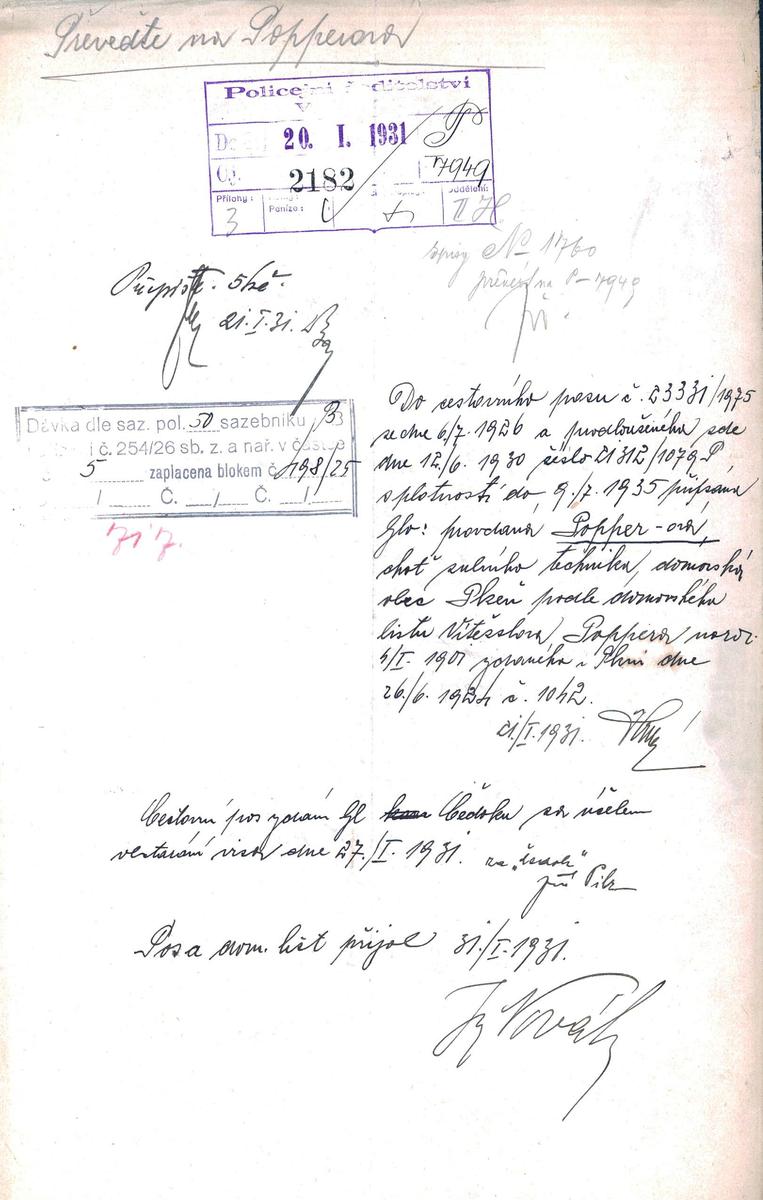 Převeďte na Popperová
Policejní ředitelství
V
Do 20. I. 1931 P
Čj. 2182 7949
Přílohy: Peníze: Oddělení:
3 II H
spisy N-1760
převést na P-7949
Připiš. 5 kč.
21.I.31.
Dávka dle saz. pol. 50 sazebníku B
č. 254/26 sb. z. a nař. v částce
5 zaplacena blokem č. 498/25
/ Č. / Č. /
717.
Do cestovního pasu č. 23331/1975
ze dne 6/7. 1926 a prodlouženého zde
dne 12./6. 1930 číslo 21312/1079 P
s platností do 9./7. 1935 připsána
Glo: provdaná Popper-ová,
choť zubního technika, domovská
obec Plzeň podle domovského
listu Vítězslava Poppera naroz.
4/I. 1901 vydaného v Plzni dne
26./6. 1924 č. 1042.
21./I. 1931.
Cestovní pas vydán Gl Čedoku za účelem
obstarání visa dne 27./I. 1931. za "Čedok"
Pilz
Pas a dom. list přijal 31./I. 1931.
Novák